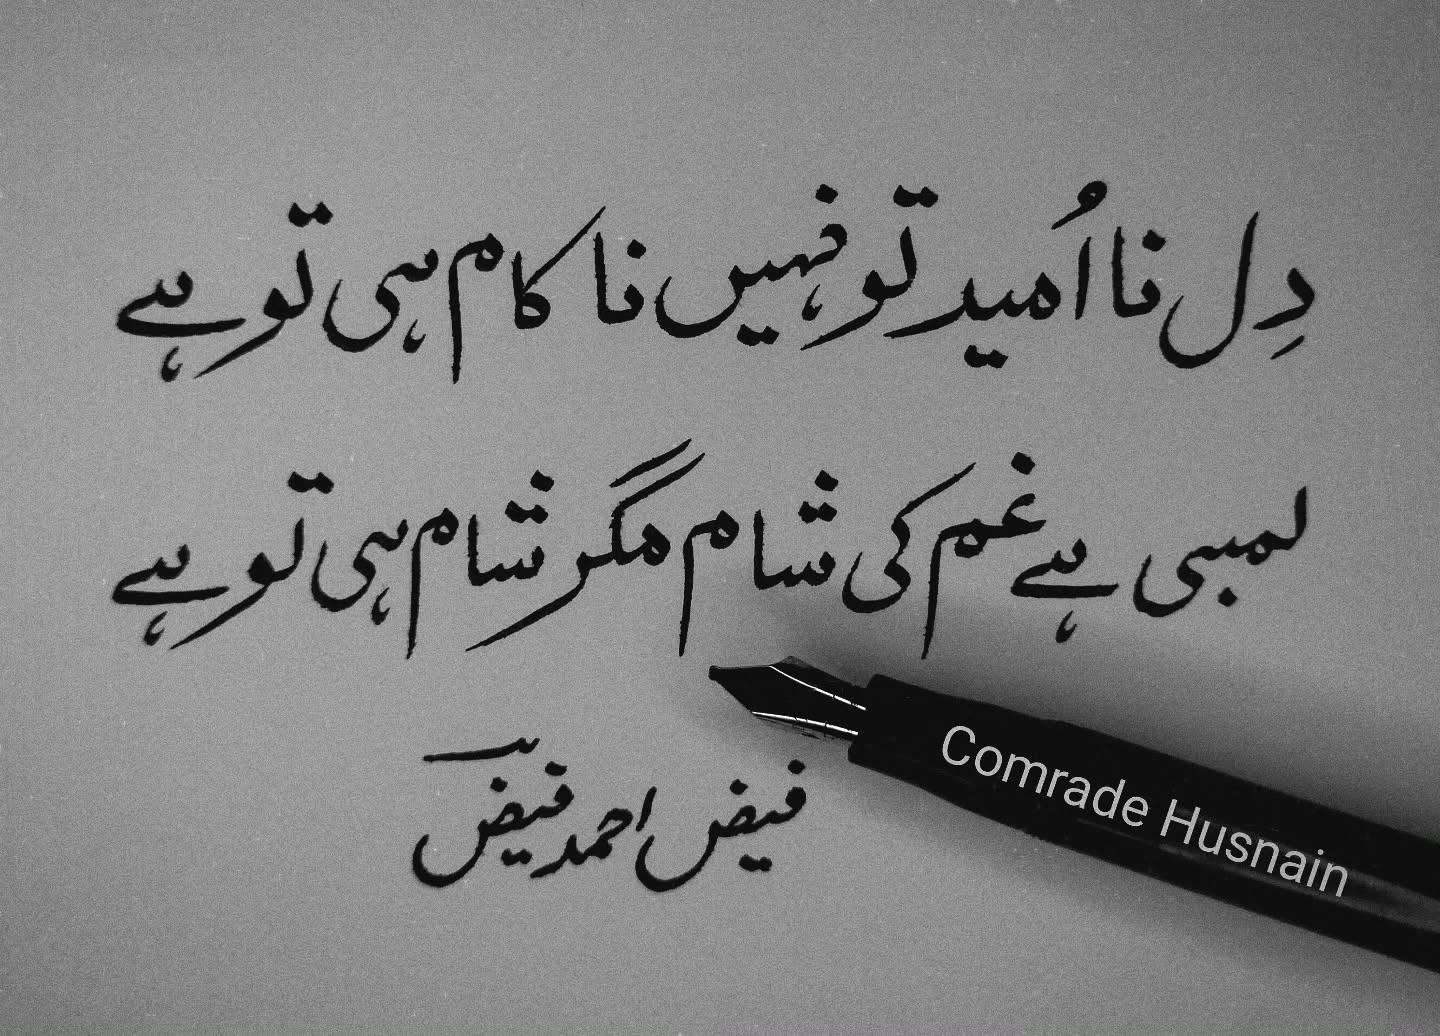 دِل نا اُمید تو نہیں نا کام ہی تو ہے
لمبی ہے غم کی شام مگر شام ہی تو ہے
فیض احمد فیضؔ
Comrade Husnain